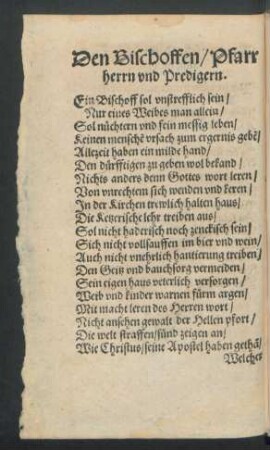 Den Bischoffen/Pfarr
herrn vnd Predigern.
Ein Bischoff sol vnstrefflich sein/
Nur eines Weibes man allein/
Sol nüchtern vnd fein messig leben/
Keinen menschē vrsach zum ergernis gebē/
Allezeit haben ein milde hand/
Den dürfftigen zu geben wol bekand/
Nichts anders denn Gottes wort leren/
Von vnrechtem sich wenden vnd keren/
In der Kirchen trewlich halten haus/
Die Ketzerische lehr treiben aus/
Sol nicht haderisch noch zenckisch sein/
Sich nicht vollsauffen im bier vnd wein/
Auch nicht vnehrlich hantierung treiben/
Den Geitz vnd bauchsorg vermeiden/
Sein eigen haus veterlich versorgen/
Weib vnd kinder warnen fürm argen/
Mit macht leren des Herren wort/
Nicht ansehen gewalt der Hellen pfort/
Die welt straffen/sünd zeigen an/
Wie Christus/seine Apostel haben gethā/
Welches